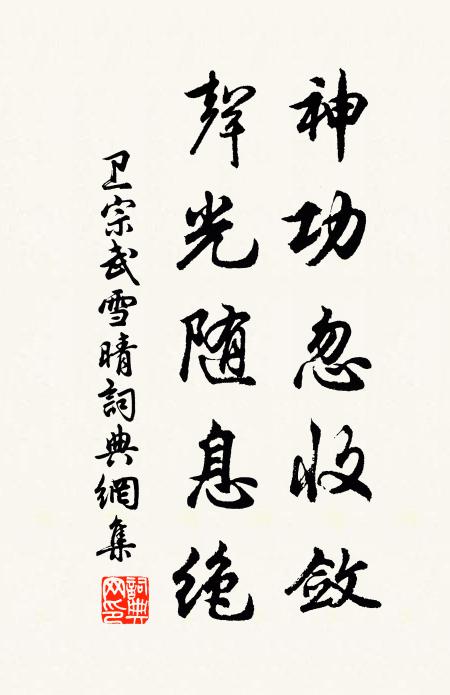 神功忽收斂
聲光随息绝
卫宗武雪晴詞典網集
詞典网印